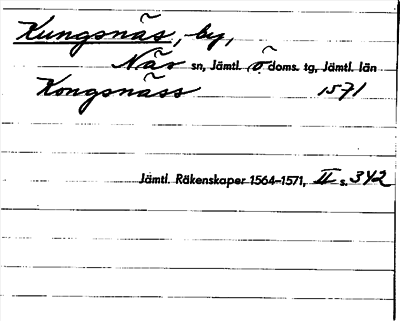 Kungsnäs, by,
Näs sn, Jämtl. ö. doms. tg, Jämtl. län
Kongsnäss 1571
Jämtl. Räkenskaper 1564–1571, II s. 342